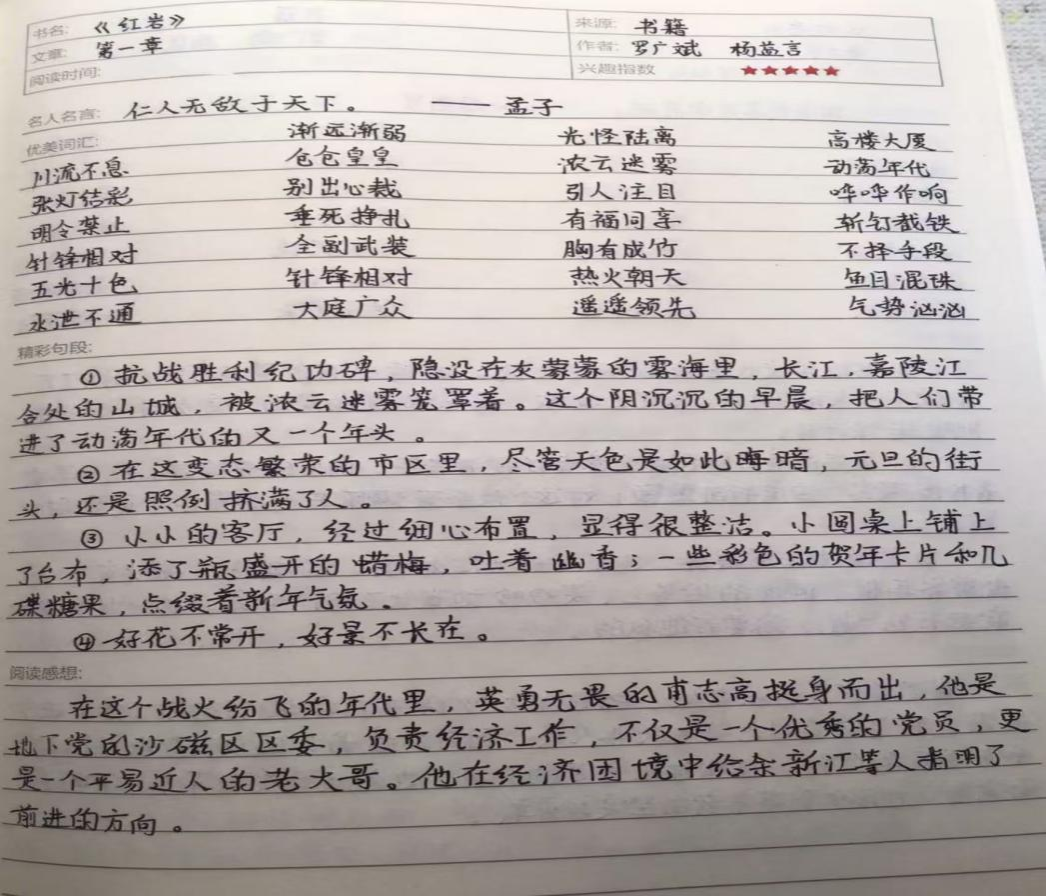 书名: 《红岩》 来源: 书籍
文章: 第一章 作者: 罗广斌 杨益言
阅读时间: 兴趣指数 ★★★★★
名人名言: 仁人无敌于天下。 —— 孟子
优美词汇: 渐远渐弱 光怪陆离 高楼大厦
川流不息 仓仓皇皇 浓云迷雾 动荡年代
张灯结彩 别出心裁 引人注目 哗哗作响
明令禁止 垂死挣扎 有福同享 斩钉截铁
针锋相对 全副武装 胸有成竹 不择手段
五光十色 针锋相对 热火朝天 鱼目混珠
水泄不通 大庭广众 遥遥领先 气势汹汹
精彩句段:
① 抗战胜利纪功碑，隐没在灰蒙蒙的雾海里，长江，嘉陵江
合处的山城，被浓云迷雾笼罩着。这个阴沉沉的早晨，把人们带
进了动荡年代的又一个年头。
② 在这变态繁荣的市区里，尽管天色是如此晦暗，元旦的街
头，还是照例挤满了人。
③ 小小的客厅，经过细心布置，显得很整洁。小圆桌上铺上
了台布，添了瓶盛开的腊梅，吐着幽香；一些彩色的贺年卡片和几
碟糖果，点缀着新年气氛。
④ 好花不常开，好景不长在。
阅读感想:
在这个战火纷飞的年代里，英勇无畏的甫志高挺身而出，他是
地下党的沙磁区区委，负责经济工作，不仅是一个优秀的党员，更
是一个平易近人的老大哥。他在经济困境中给余新江等人指明了
前进的方向。